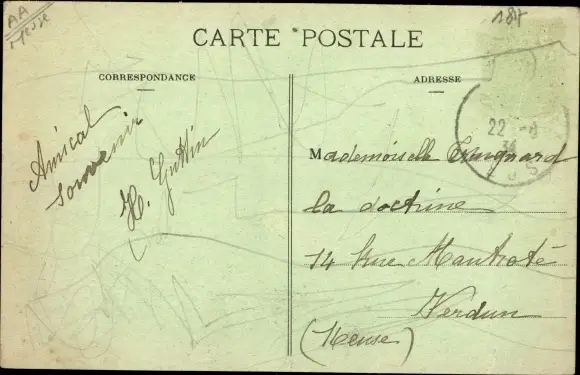 AA
184
CARTE POSTALE
CORRESPONDANCE
ADRESSE
Amical
souvenir
H. Guttin
22 - 8
Mademoiselle
La doctrine
14 Rue
Verdun
(Meuse)